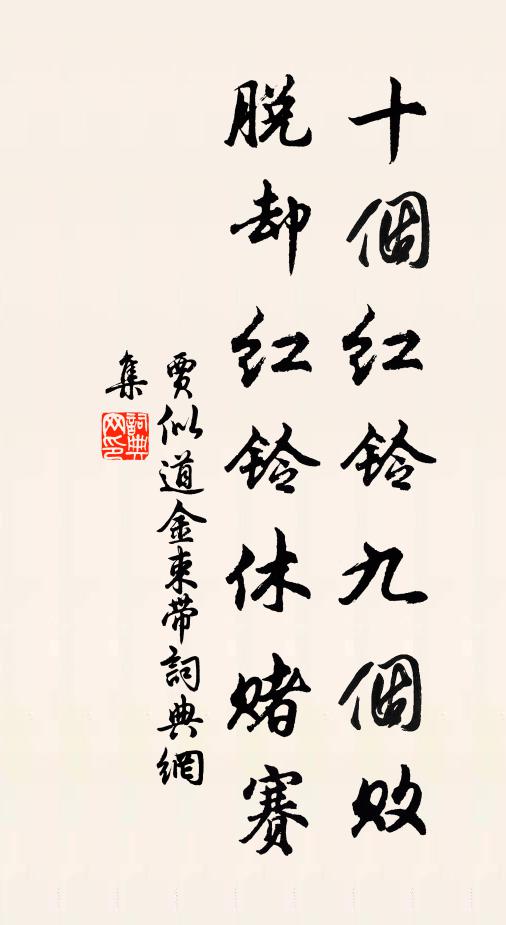 十個紅鈴九個敗
脱却紅鈴休赌賽
賈似道金束帶詞典網
集
詞典网印